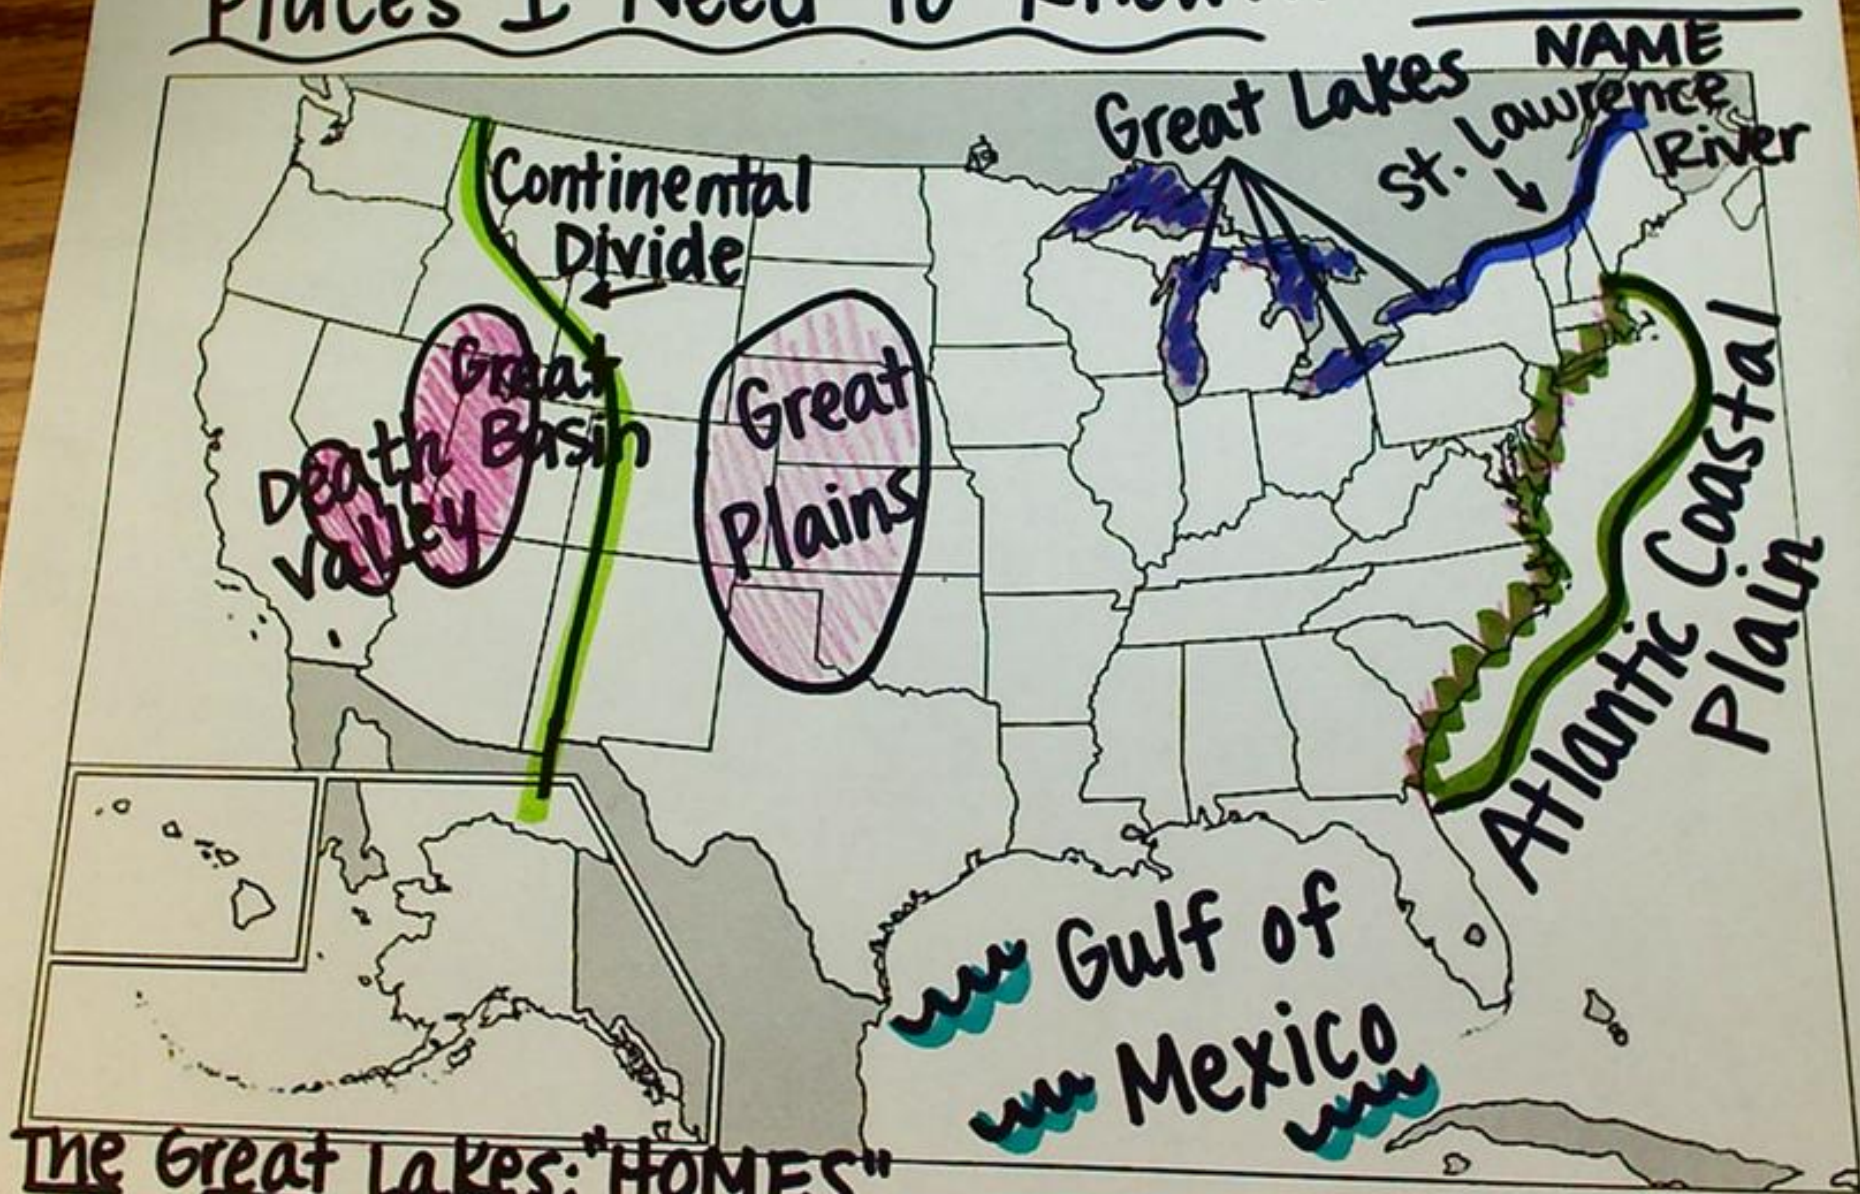 Places I Need To Know
NAME
Great Lakes
St. Lawrence
River
Continental
Divide
Great
Basin
Death
Valley
Great
Plains
Atlantic Coastal
Plain
Gulf of
Mexico
The Great Lakes: "HOMES"